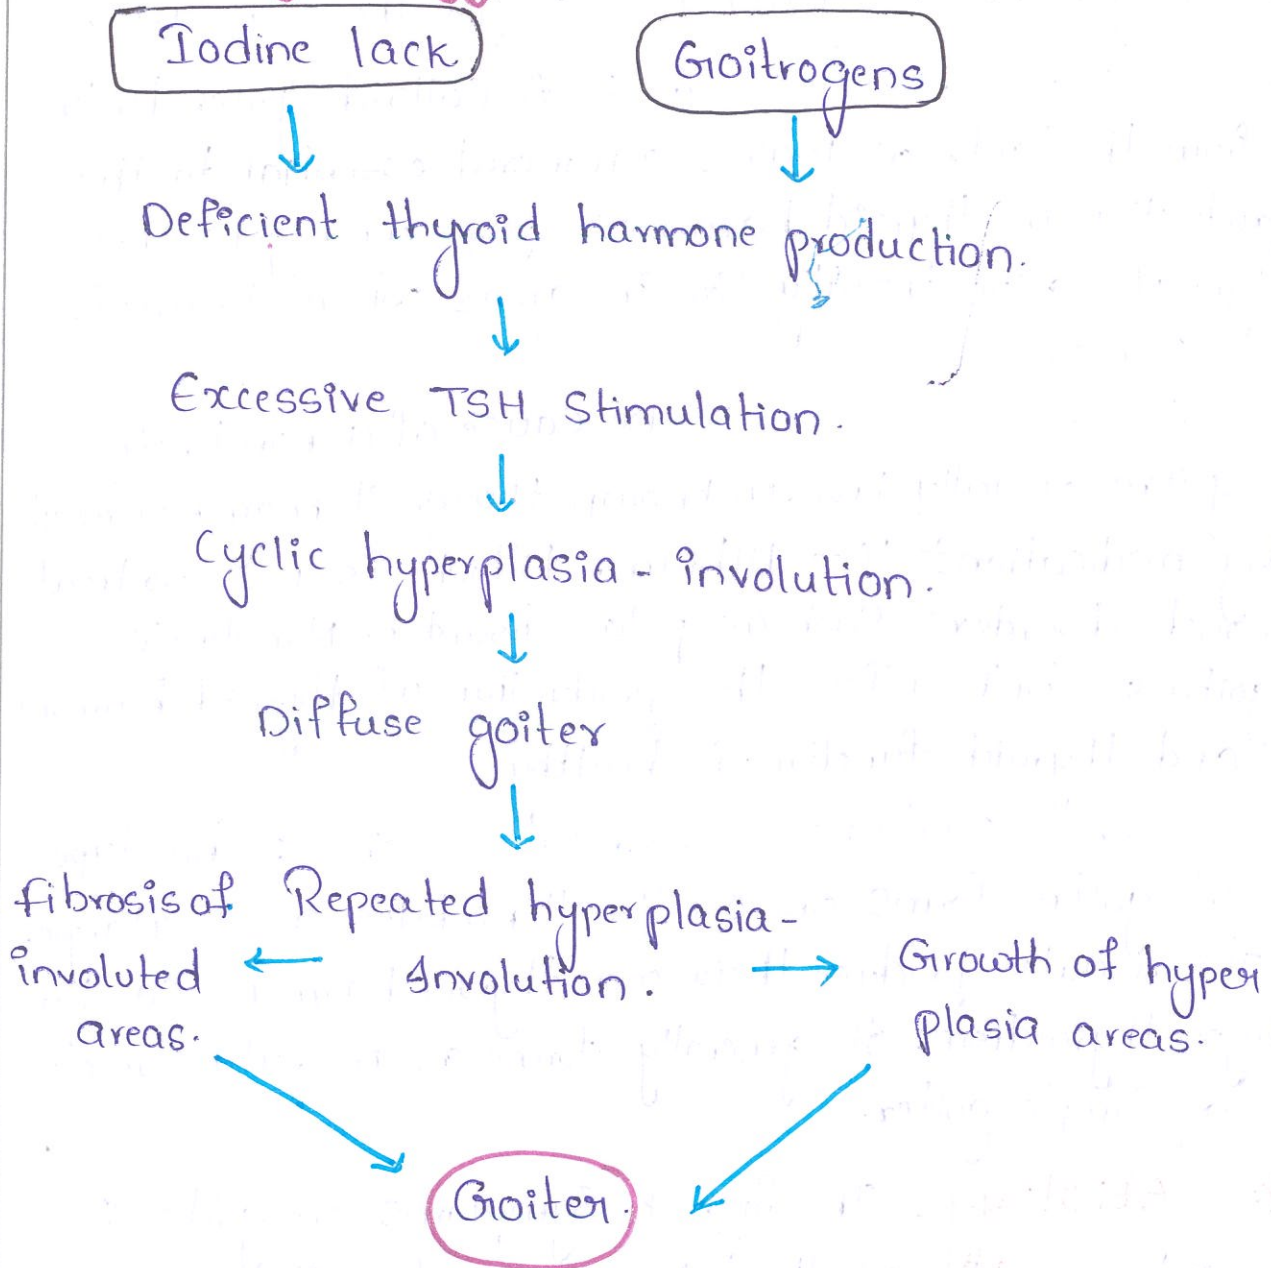 Iodine lack
Goitrogens
Deficient thyroid harmone production.
Excessive TSH Stimulation.
Cyclic hyperplasia - involution.
Diffuse goiter
fibrosis of
involuted
areas.
Repeated hyperplasia -
Involution.
Growth of hyper
plasia areas.
Goiter.